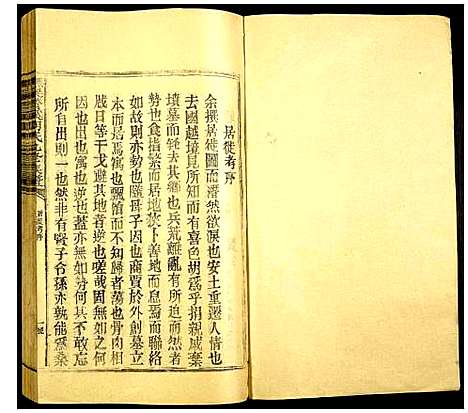 居徙考序
余撰居徙圖而潸然欲淚也安土重遷人情也
去國越境見所知而有喜色胡為乎捐親戚棄
墳墓而轻去其鄉也兵荒離亂有所迫而然者
勢也食指繁而居地一善地而息焉而聯絡
如故則亦勢也隨母子因也商賈於外創墓立
本而最焉寓也飄館而不知歸者蕩也骨肉相
戕日等干戈避其地者逆也嗟哉固無如之何
因也出也寓也逆也蓋亦無如勢何其不敢忘
所自出則一也然非有賢子令孫亦孰能為桑
居徙考序